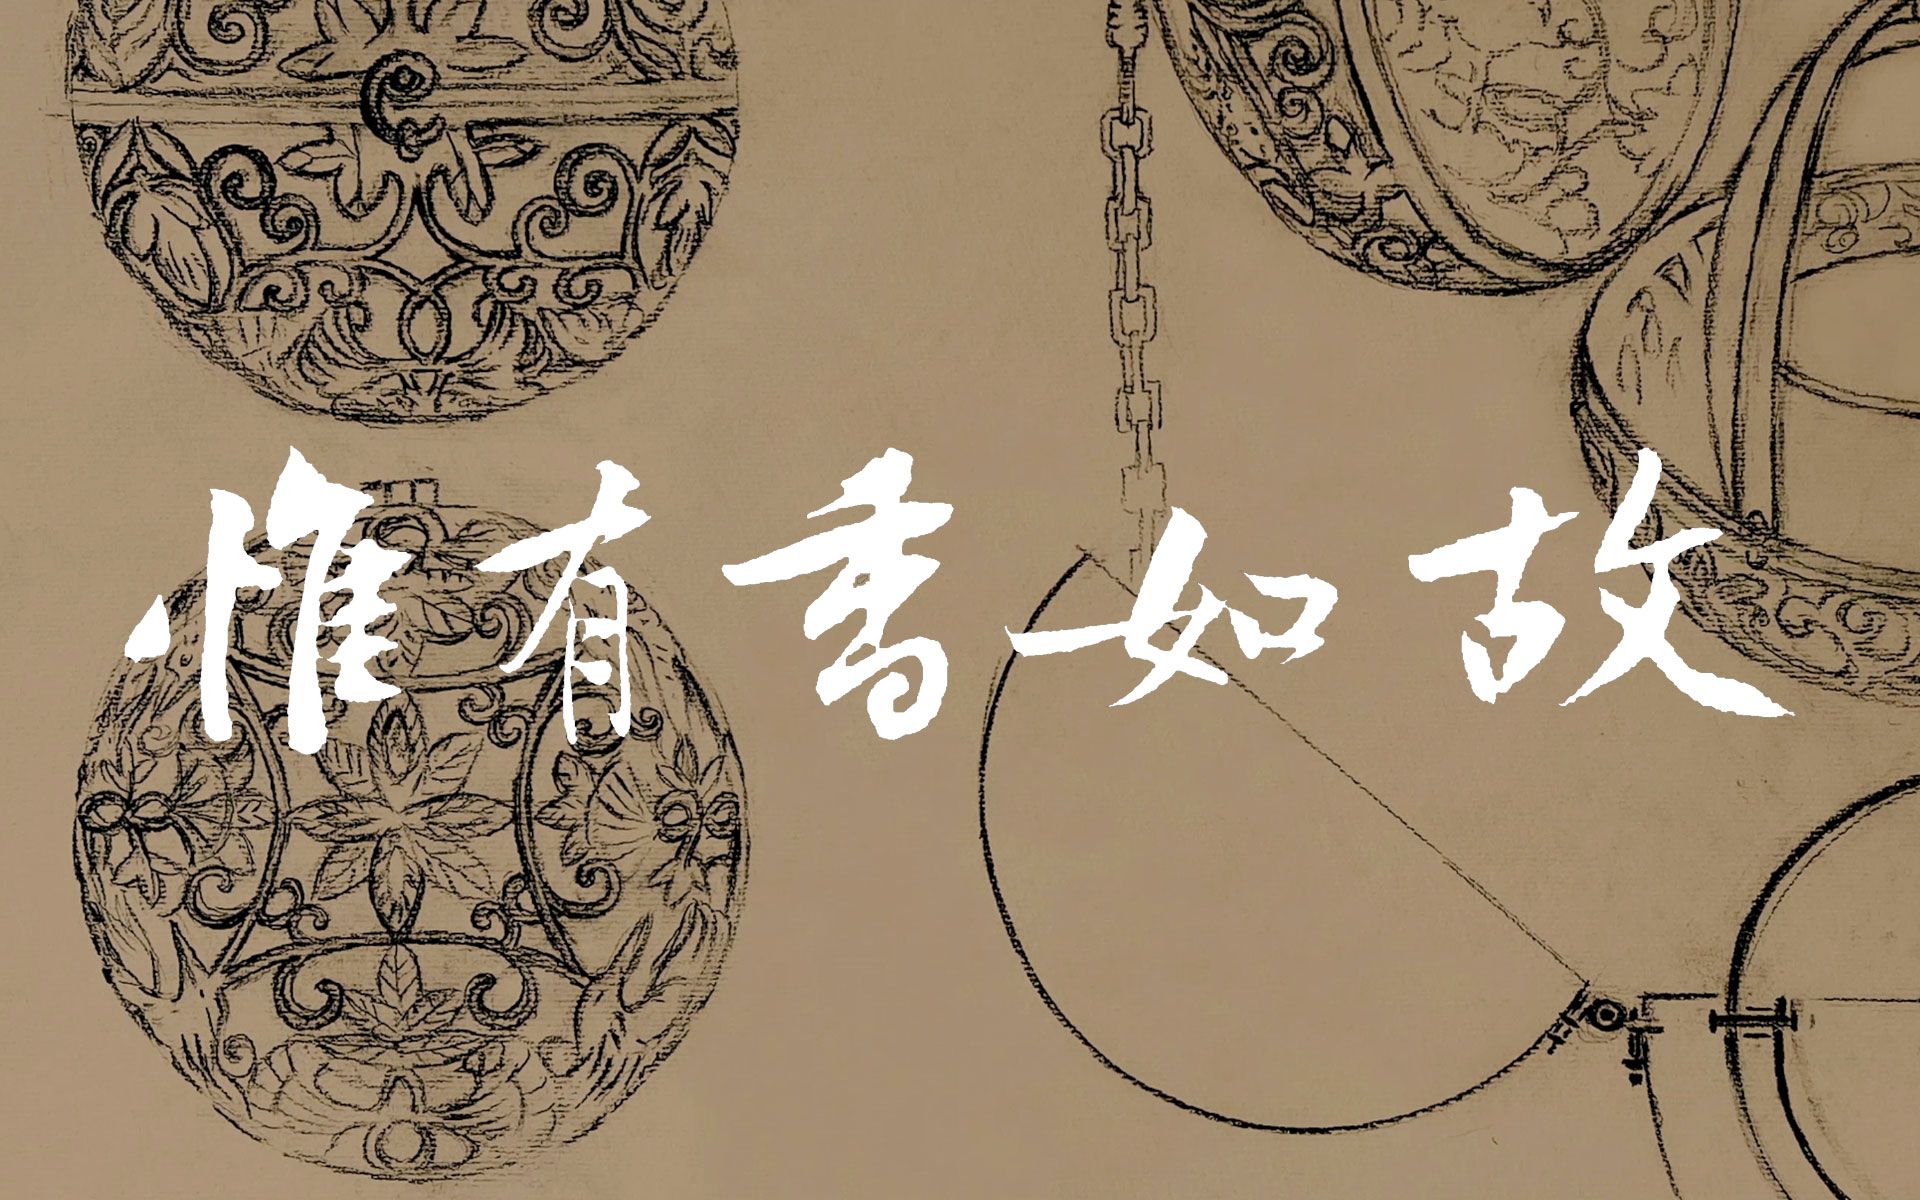 惟有香如故